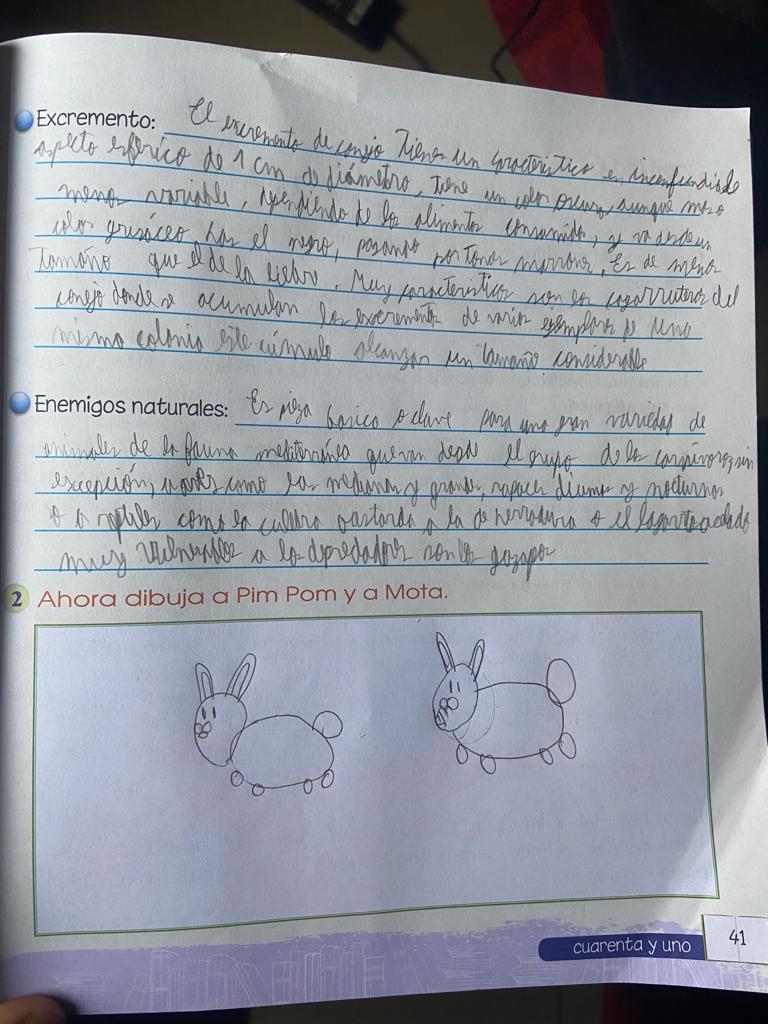 Excremento: El excremento de conejo Tiene un caracteristico e inconfundible
aspecto esférico de 1 cm de diámetro, Tiene un color oscuro, aunque
menor variable, dependiendo de los alimentos consumido, y va desde un
color grisáceo has el negro, pasando por tonos marrones, Es de menor
Tamaño que el de la liebre. Muy caracteristicos son los cagarruteros del
conejo donde se acumulan los excrementos de varios ejemplares de una
misma colonia este cúmulo alcanzar un tamaño considerable
Enemigos naturales: Es pieza basica o clave para una gran variedad de
animales de la fauna mediterránea que van desde el grupo de los carnivoros, sin
excepción, como las medianas y grandes, rapaces diurnas y nocturnas
o a reptiles como la culebra bastarda o la de herradura o el lagarto ocelado
muy vulnerables a los depredadores son los gazapos
2 Ahora dibuja a Pim Pom y a Mota.
cuarenta y uno
41